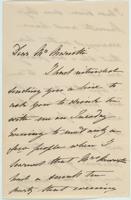 Dear Mr Marriott
I had intended
sending you a line to
ask you to dine
with me on Tuesday
evening to meet only a
few people when I
learned that Mrs
had a small tea
party that evening